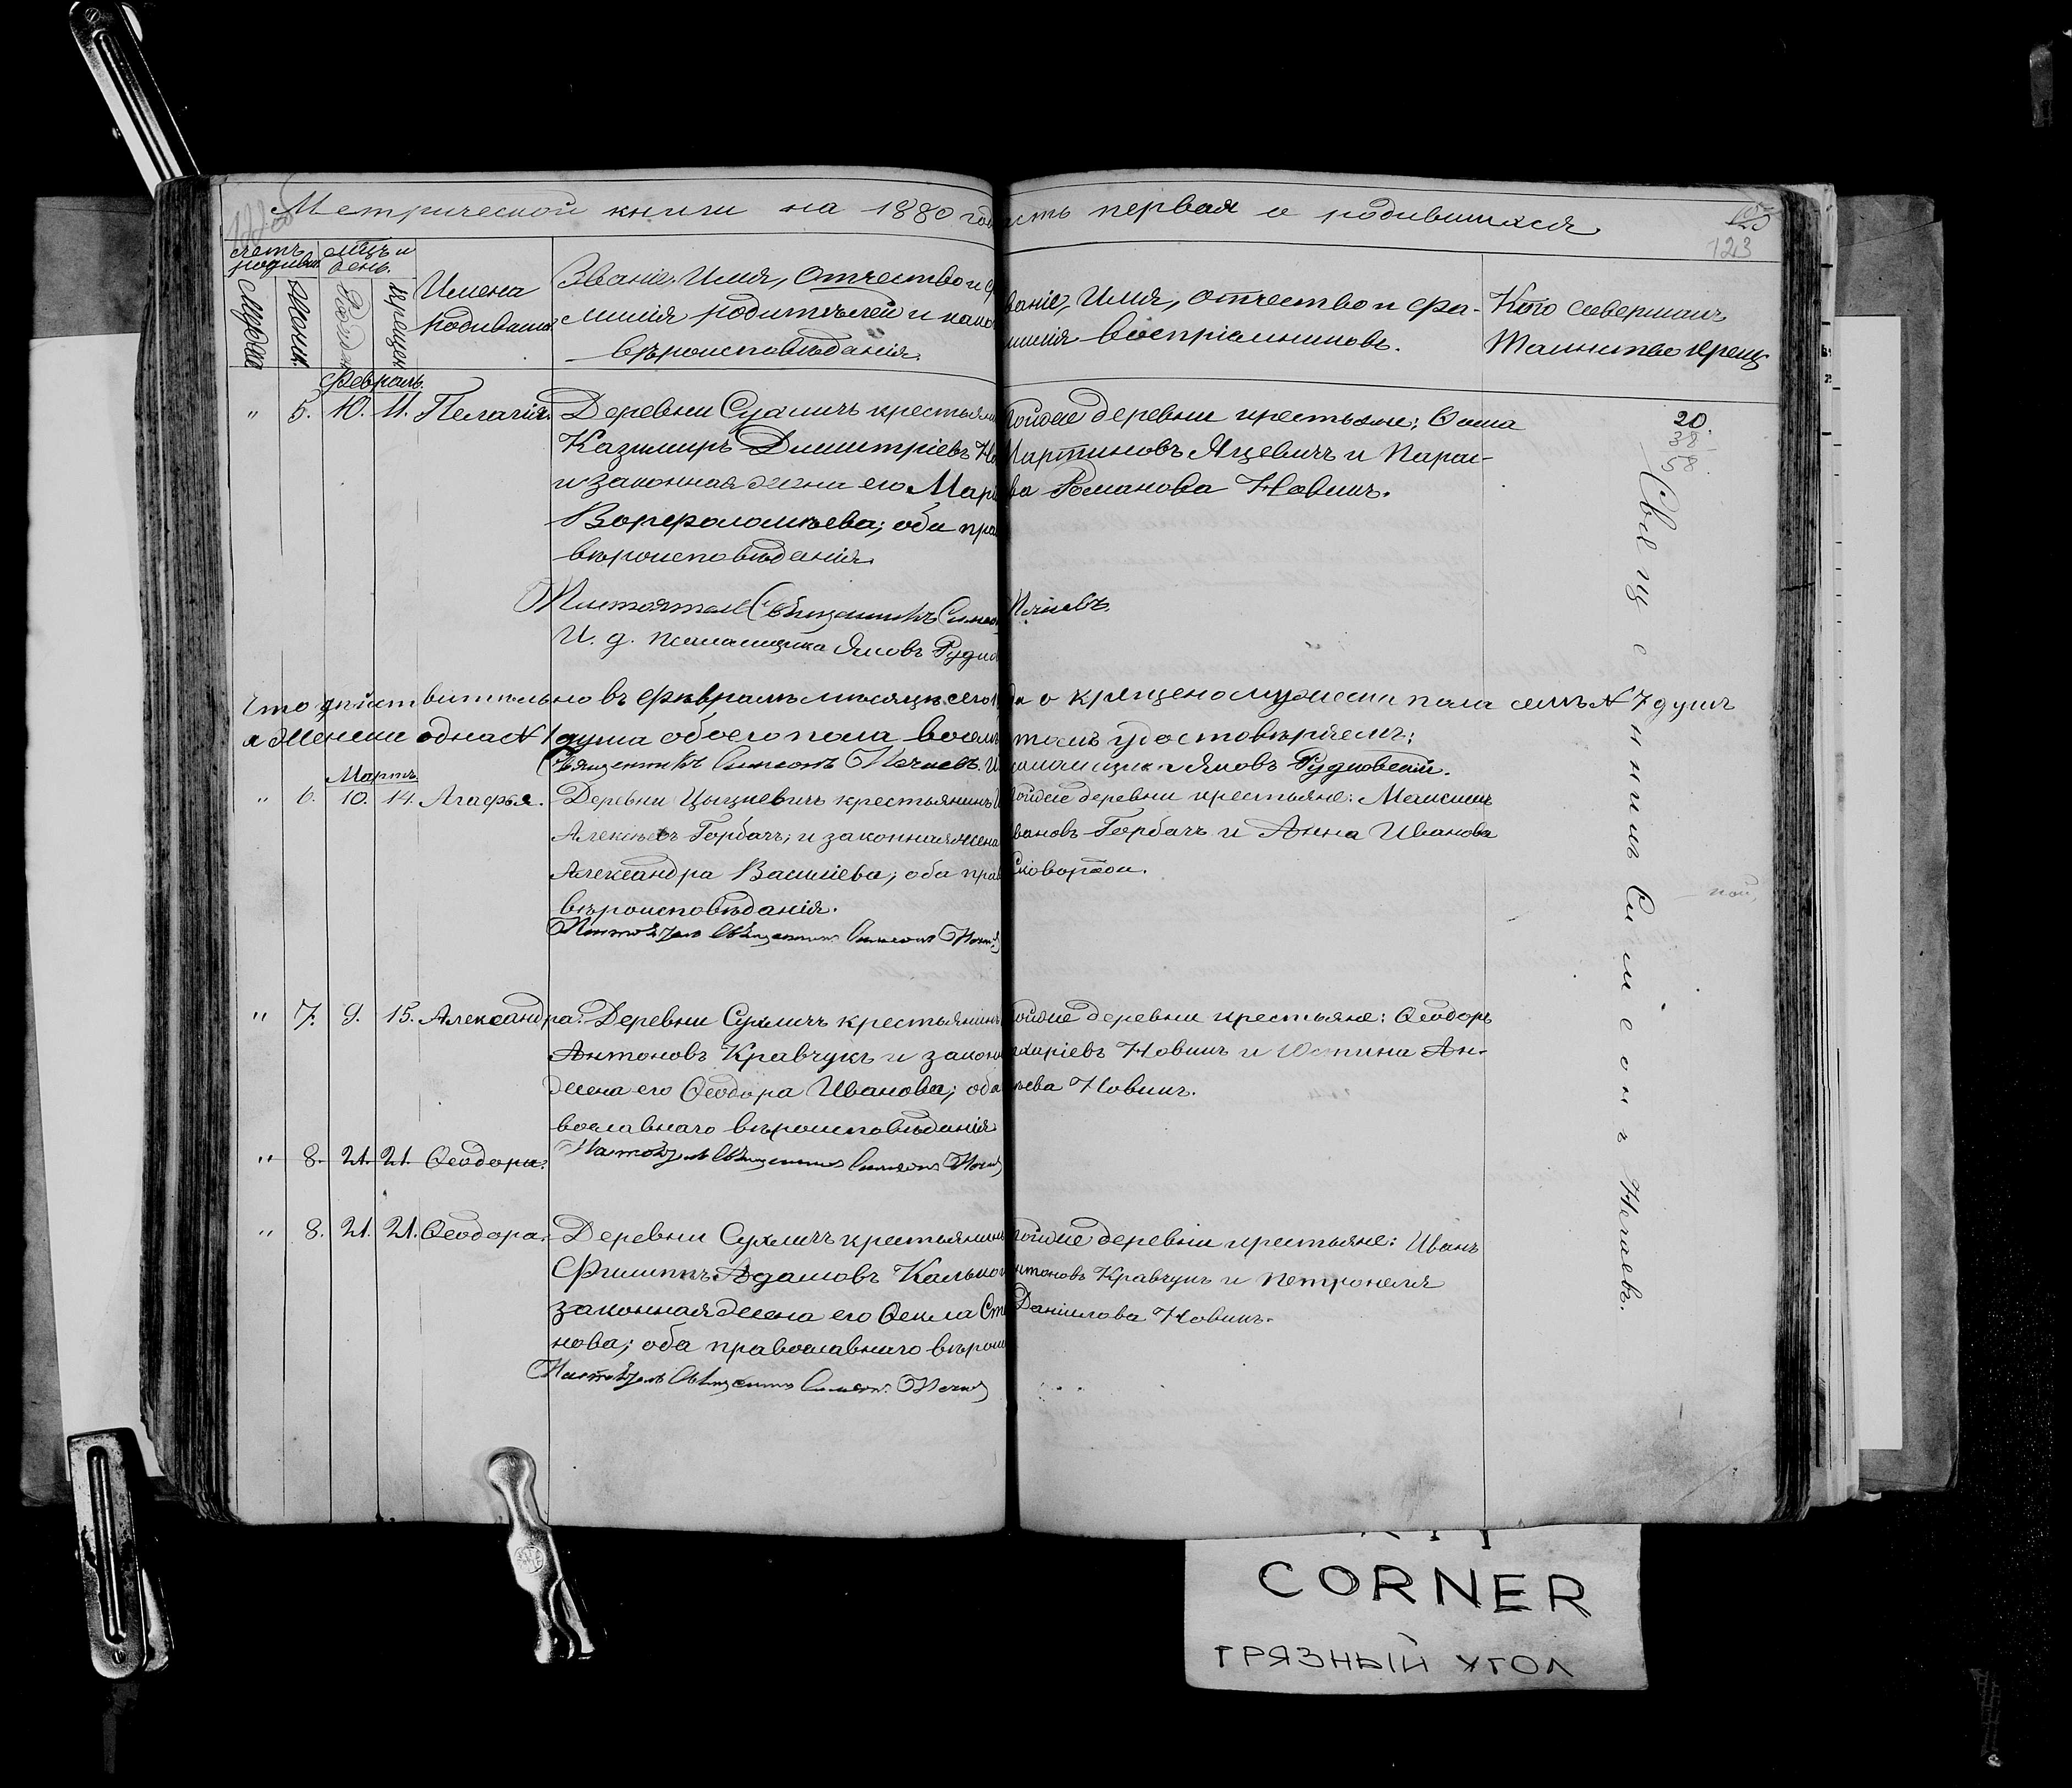 Метрической книги на 1880 год
асть первая о родившихся
123
счетъ родивш.
мѣсц. и день.
Мужск.
Женск.
Рожден.
Крещен.
Имена родивших.
Званіе, Имя, Отчество и ф
милія родителей и како
вѣроисповѣданія.
ваніе, Имя, отчество и фа-
милія воспріемниковъ.
Кто совершалъ
таинство крещ.
Февраль.
" 5. 10. 11. Пелагія.
Деревни Сухличъ крестьян
Казимиръ Димитріевъ Но
и законная жена его Мар
Варфоломѣева; оба пра
вѣроисповѣданія.
тойже деревни крестьяне: Ѳома
Мартиновъ Яцевичъ и Парас-
ва Романова Новикъ.
20.
38
58.
Настоятель Священникъ Симео
Нечаевъ
И. д. псаломщика Яковъ Рудко
Что дѣйствительно въ февралѣ мѣсяцѣ сего
да о крещено мужеска пола семь № 7 душъ
а Женска одна № 1 душа обоего пола восемь
томъ удостовѣряемъ:
Священникъ Симеонъ Нечаевъ. И
саломщика Яковъ Рудковскій.
Мартъ.
" 6. 10. 14. Агафья.
Деревни Цыцкевичъ крестьянинъ И
Алексѣевъ Горбачъ, и законная жена
Александра Васильева; оба прав
вѣроисповѣданія.
Настоятель Священникъ Симеонъ Нечаев
тойже деревни крестьяне: Максимъ
вановъ Горбачъ и Анна Иванова
Сковородко.
" 7. 9. 15. Александра.
Деревни Сухличъ крестьянинъ
Антоновъ Кравчукъ и закон
жена его Ѳеодора Иванова; оба
вославнаго вѣроисповѣданія
Настоятель Священникъ Симеонъ Нечаев
тойже деревни крестьяне: Ѳеодоръ
ахаріевъ Новикъ и Юстина Ан-
ѣева Новикъ.
" 8. 21. 21. Ѳеодора.
" 8. 21. 21. Ѳеодора.
Деревни Сухличъ крестьянинъ
Филиппъ Адамовъ Калько
законная жена его Ѳекла Сте
нова; оба православнаго вѣроис
Настоятель Священникъ Симеонъ Нечаев
тойже деревни крестьяне: Иванъ
нтоновъ Кравчукъ и Петронеля
Даніилова Новикъ.
Священникъ Симеонъ Нечаевъ.
CORNER
ГРЯЗНЫЙ УГОЛ